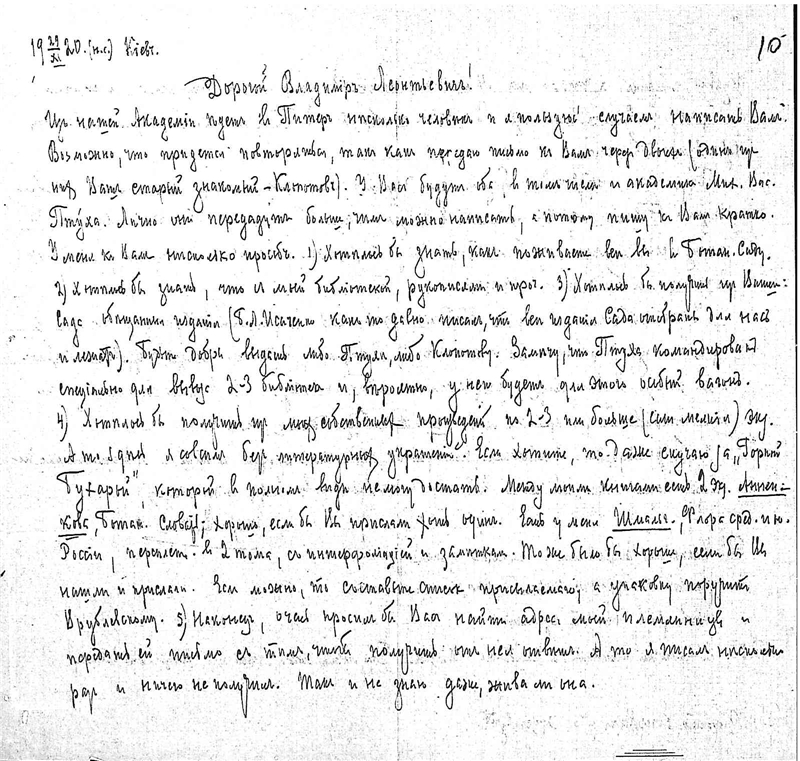 19 29/XI 20. (н.с.) Кіевъ.
10
Дорогой Владиміръ Леонтьевичъ!
Изъ нашей Академіи ѣдетъ въ Питеръ нѣсколько человѣкъ и я пользуюсь случаемъ написать Вамъ.
Возможно, что придется повторяться, такъ какъ передаю письмо къ Вамъ черезъ двоихъ (одинъ изъ
нихъ Вашъ старый знакомый – Клопотовъ). У Васъ будутъ оба, въ томъ числѣ и академикъ Мих. Вас.
Птуха. Лично они передадутъ больше, чѣмъ можно написать, а потому пишу къ Вамъ кратко.
У меня къ Вамъ нѣсколько просьбъ. 1) Хотѣлось бы знать, какъ поживаете всѣ вы въ Ботан. Саду.
2) Хотѣлось бы знать, что съ моей библіотекой, рукописями и проч. 3) Хотѣлось бы получить изъ Вашего
Сада обѣщанныя изданія (Б.Л. Исаченко какъ то давно писалъ, что всѣ изданія Сада отобраны для насъ
и лежатъ). Будьте добры выдать либо Птухѣ, либо Клопотову. Замѣчу, что Птуха командированъ
спеціально для вывоза 2-3 библіотекъ и, вѣроятно, у него будетъ для этого особый вагонъ.
4) Хотѣлось бы получить изъ моихъ собственныхъ произведеній по 2-3 или больше (если мелкія) экз.
А то здѣсь я совсѣмъ безъ „литературныхъ украшеній“. Если хотите, то даже скучаю за „Горной
Бухарой“, которой въ полномъ видѣ не могу достать. Между моими книгами есть 2 экз. Аннен-
кова, Ботан. Словарь; хорошо, если бы Вы прислали хоть одинъ. Есть у меня Шмальг., Флора сред. и ю.
Россіи, переплет. въ 2 тома, съ интерфоліаціей и замѣтками. Тоже было бы хорошо, если бы Вы
нашли и прислали. Если можно, то составьте списокъ присылаемаго, а упаковку поручите
Врублевскому. 5) Наконецъ, очень просилъ бы Васъ найти адресъ моей племянницы и
передать ей письмо съ тѣмъ, чтобы получить отъ нея отвѣтъ. А то я писалъ нѣсколько
разъ и ничего не получилъ. Такъ и не знаю даже, жива ли она.